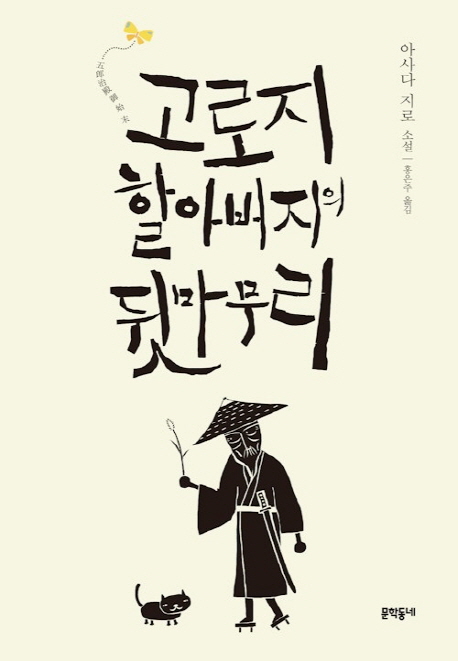 五郎治殿御始末
고로지
할아버지의
뒷마무리
아사다 지로 소설 | 홍은주 옮김
문학동네